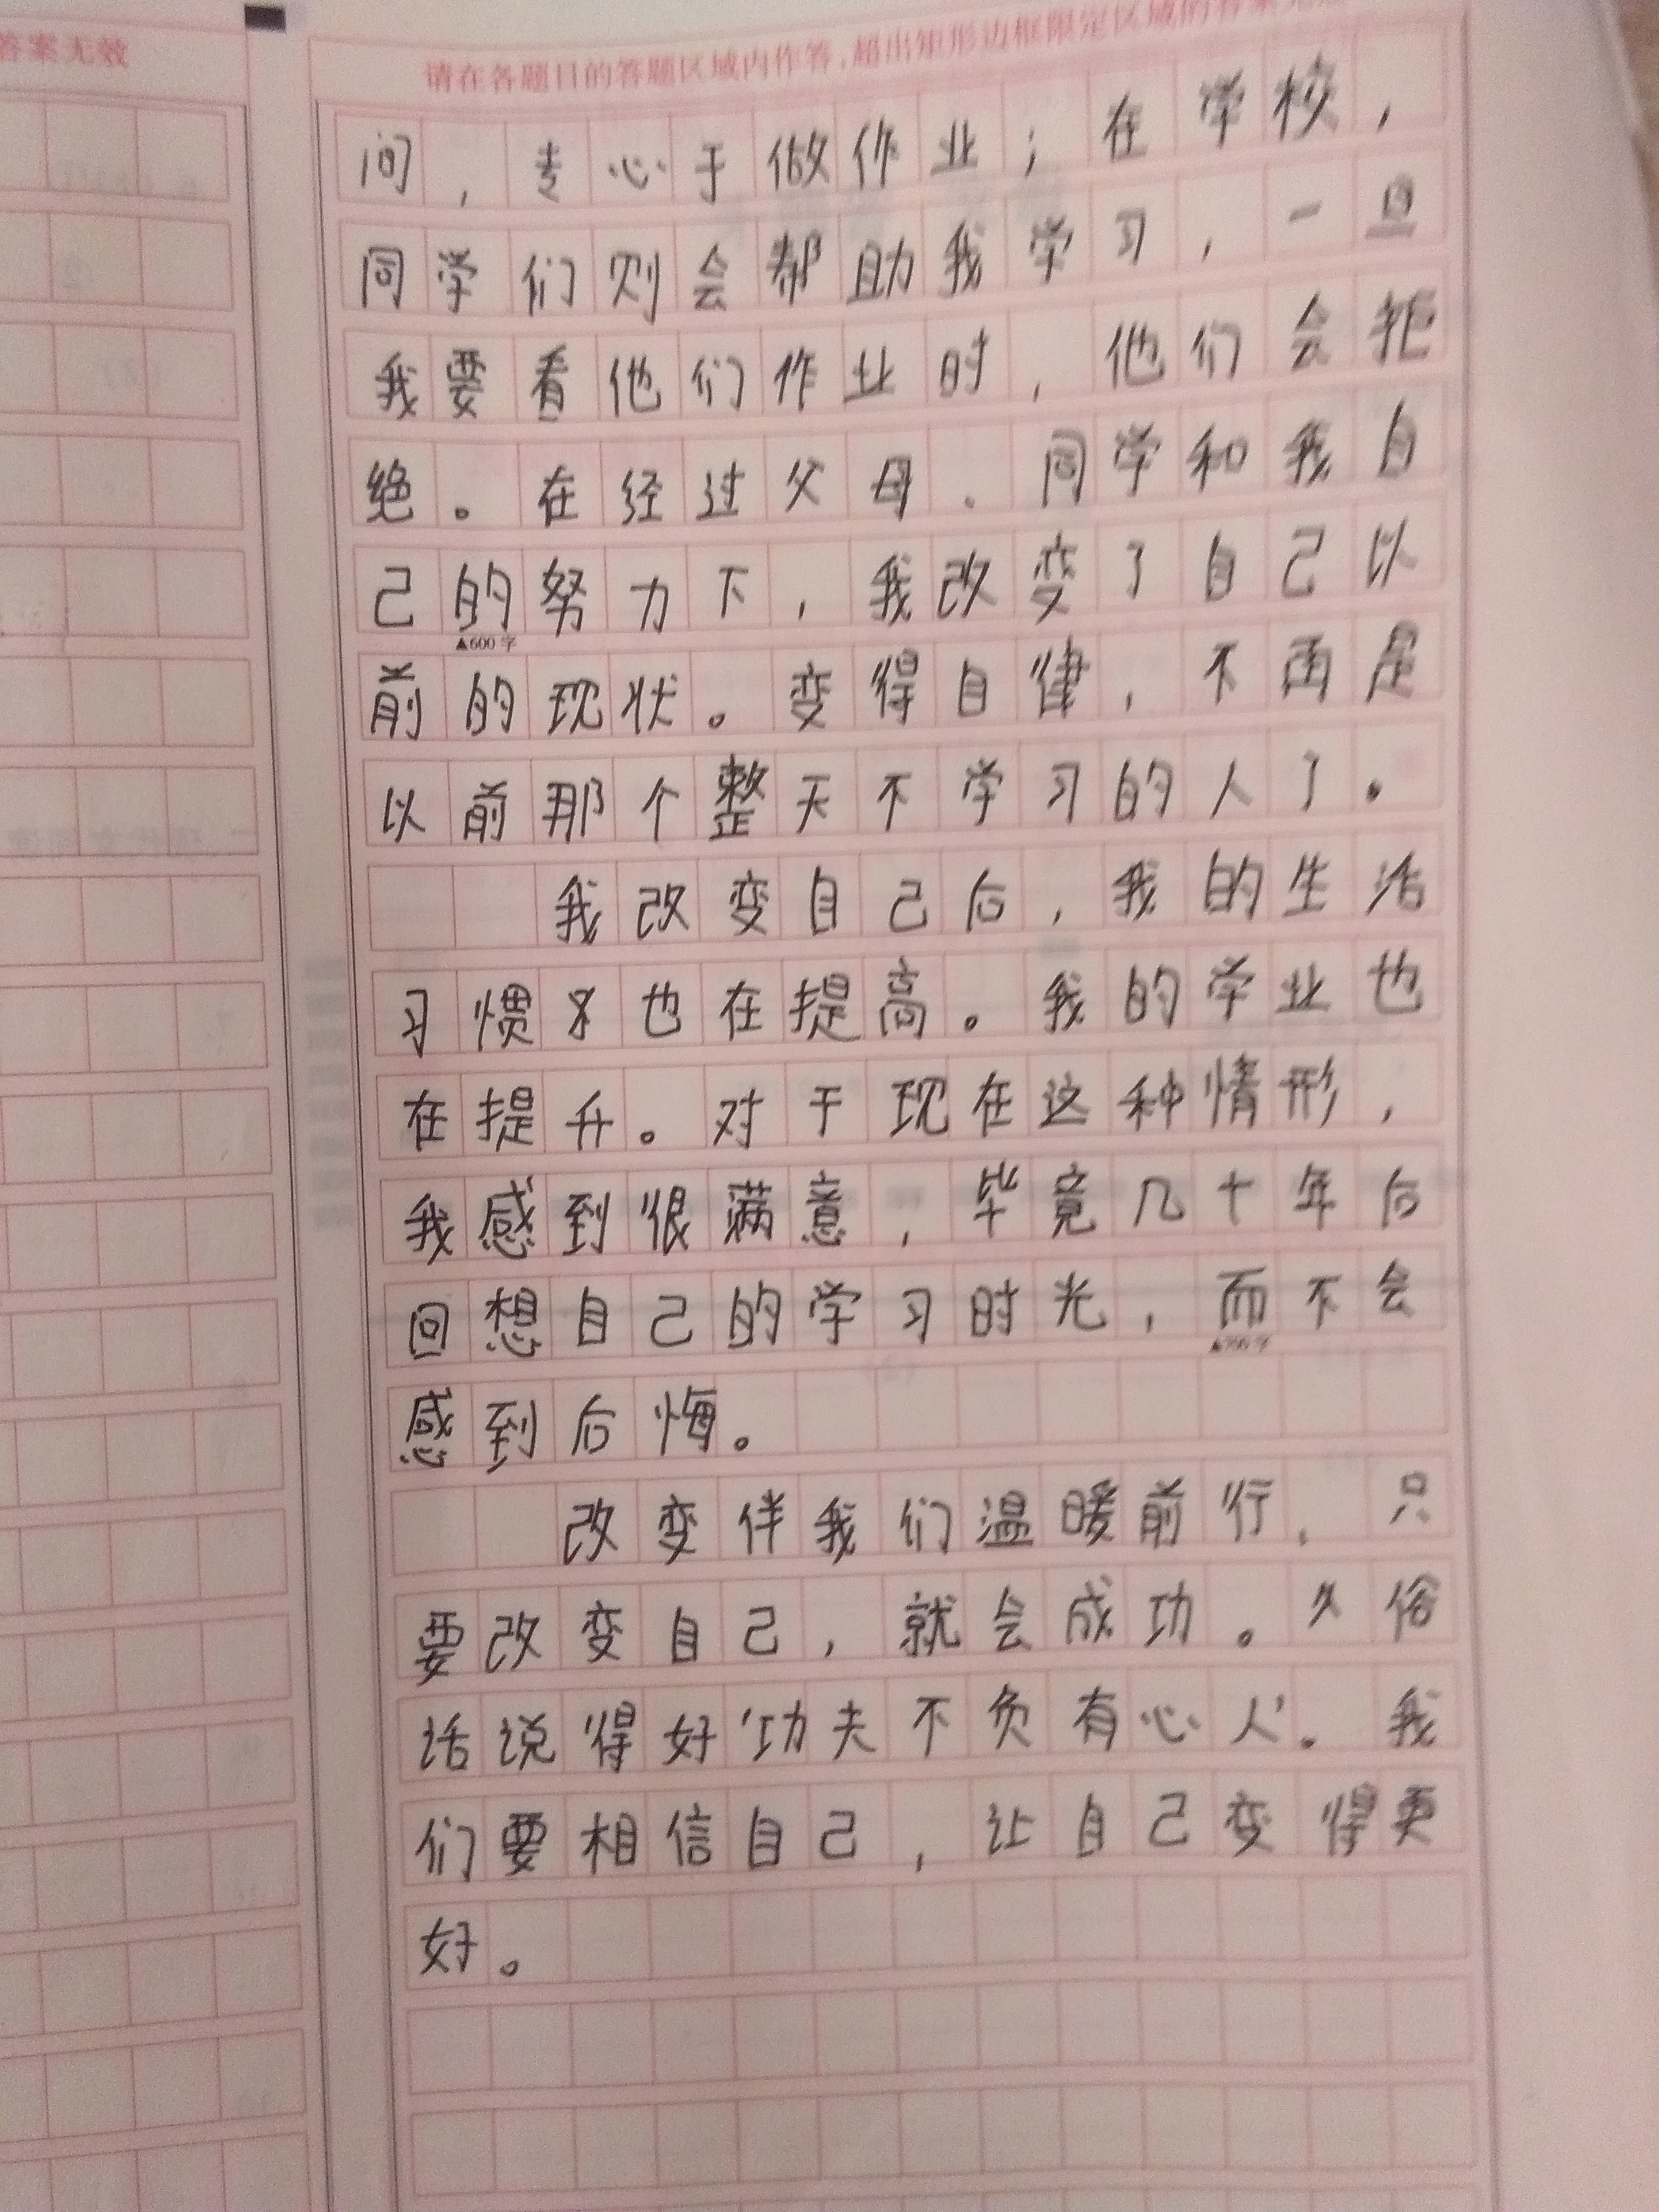 答案无效
请在各题目的答题区域内作答,超出矩形边框限定区域的答案无效
问，专心于做作业；在学校，
同学们则会帮助我学习，一旦
我要看他们作业时，他们会拒
绝。在经过父母、同学和我自
己的努力下，我改变了自己以
▲600字
前的现状。变得自律，不再是
以前那个整天不学习的人了。
我改变自己后，我的生活
习惯也在提高。我的学业也
在提升。对于现在这种情形，
我感到很满意，毕竟几十年后
回想自己的学习时光，而不会
▲700字
感到后悔。
改变伴我们温暖前行，只
要改变自己，就会成功。俗
话说得好'功夫不负有心人'。我
们要相信自己，让自己变得更
好。